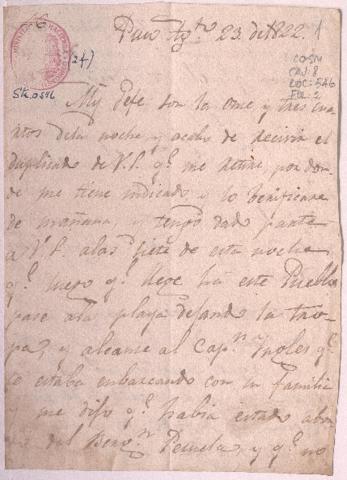 6
Paita Agto. 23. de 1822.
1
(24)
Sta.0296
COSM
CAJ: 8
DOC: 546
FOL: 2
Mi Gefe son las once y tres cua
rtos de la noche y acabo de recivir el
duplicado de V.S. qe. me
de me tiene indicado y lo berificare
de mañana y tengo dado parte
a V.S. a las siete de esta noche
qe. luego qe. llegé ha este Pueblo
pase ala playa dejando la tro-
pa, y alcanse al Capn. Yngles qe.
se estaba embarcando con su familia
y me dijo qe. habia estado abor
do del Bergn. Peruela, y qe. no